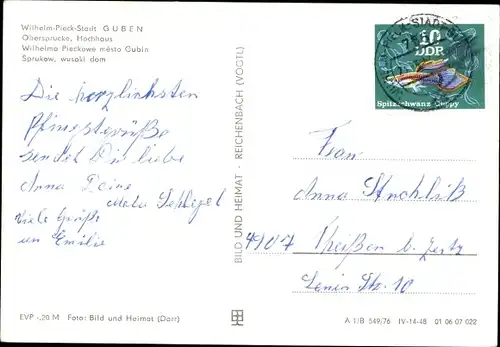 Wilhelm-Pieck-Stadt GUBEN
Obersprucke, Hochhaus
Wilhelma Pieckowe město Gubin
Sprukow, wusoki dom
10
DDR
Spitzschwanz-Guppy
Die herzlichsten
Pfingstgrüße
sendet Dir liebe
Anna Deine
Schlegel
Viele Grüße
an Emilie
BILD UND HEIMAT · REICHENBACH (VOGTL)
Frau
Anna
4907 Theißen b. Zeitz
Lenin Str. 10
EVP -,20 M Foto: Bild und Heimat (Darr)
A 1/B 549/76 IV-14-48 01 06 07 022